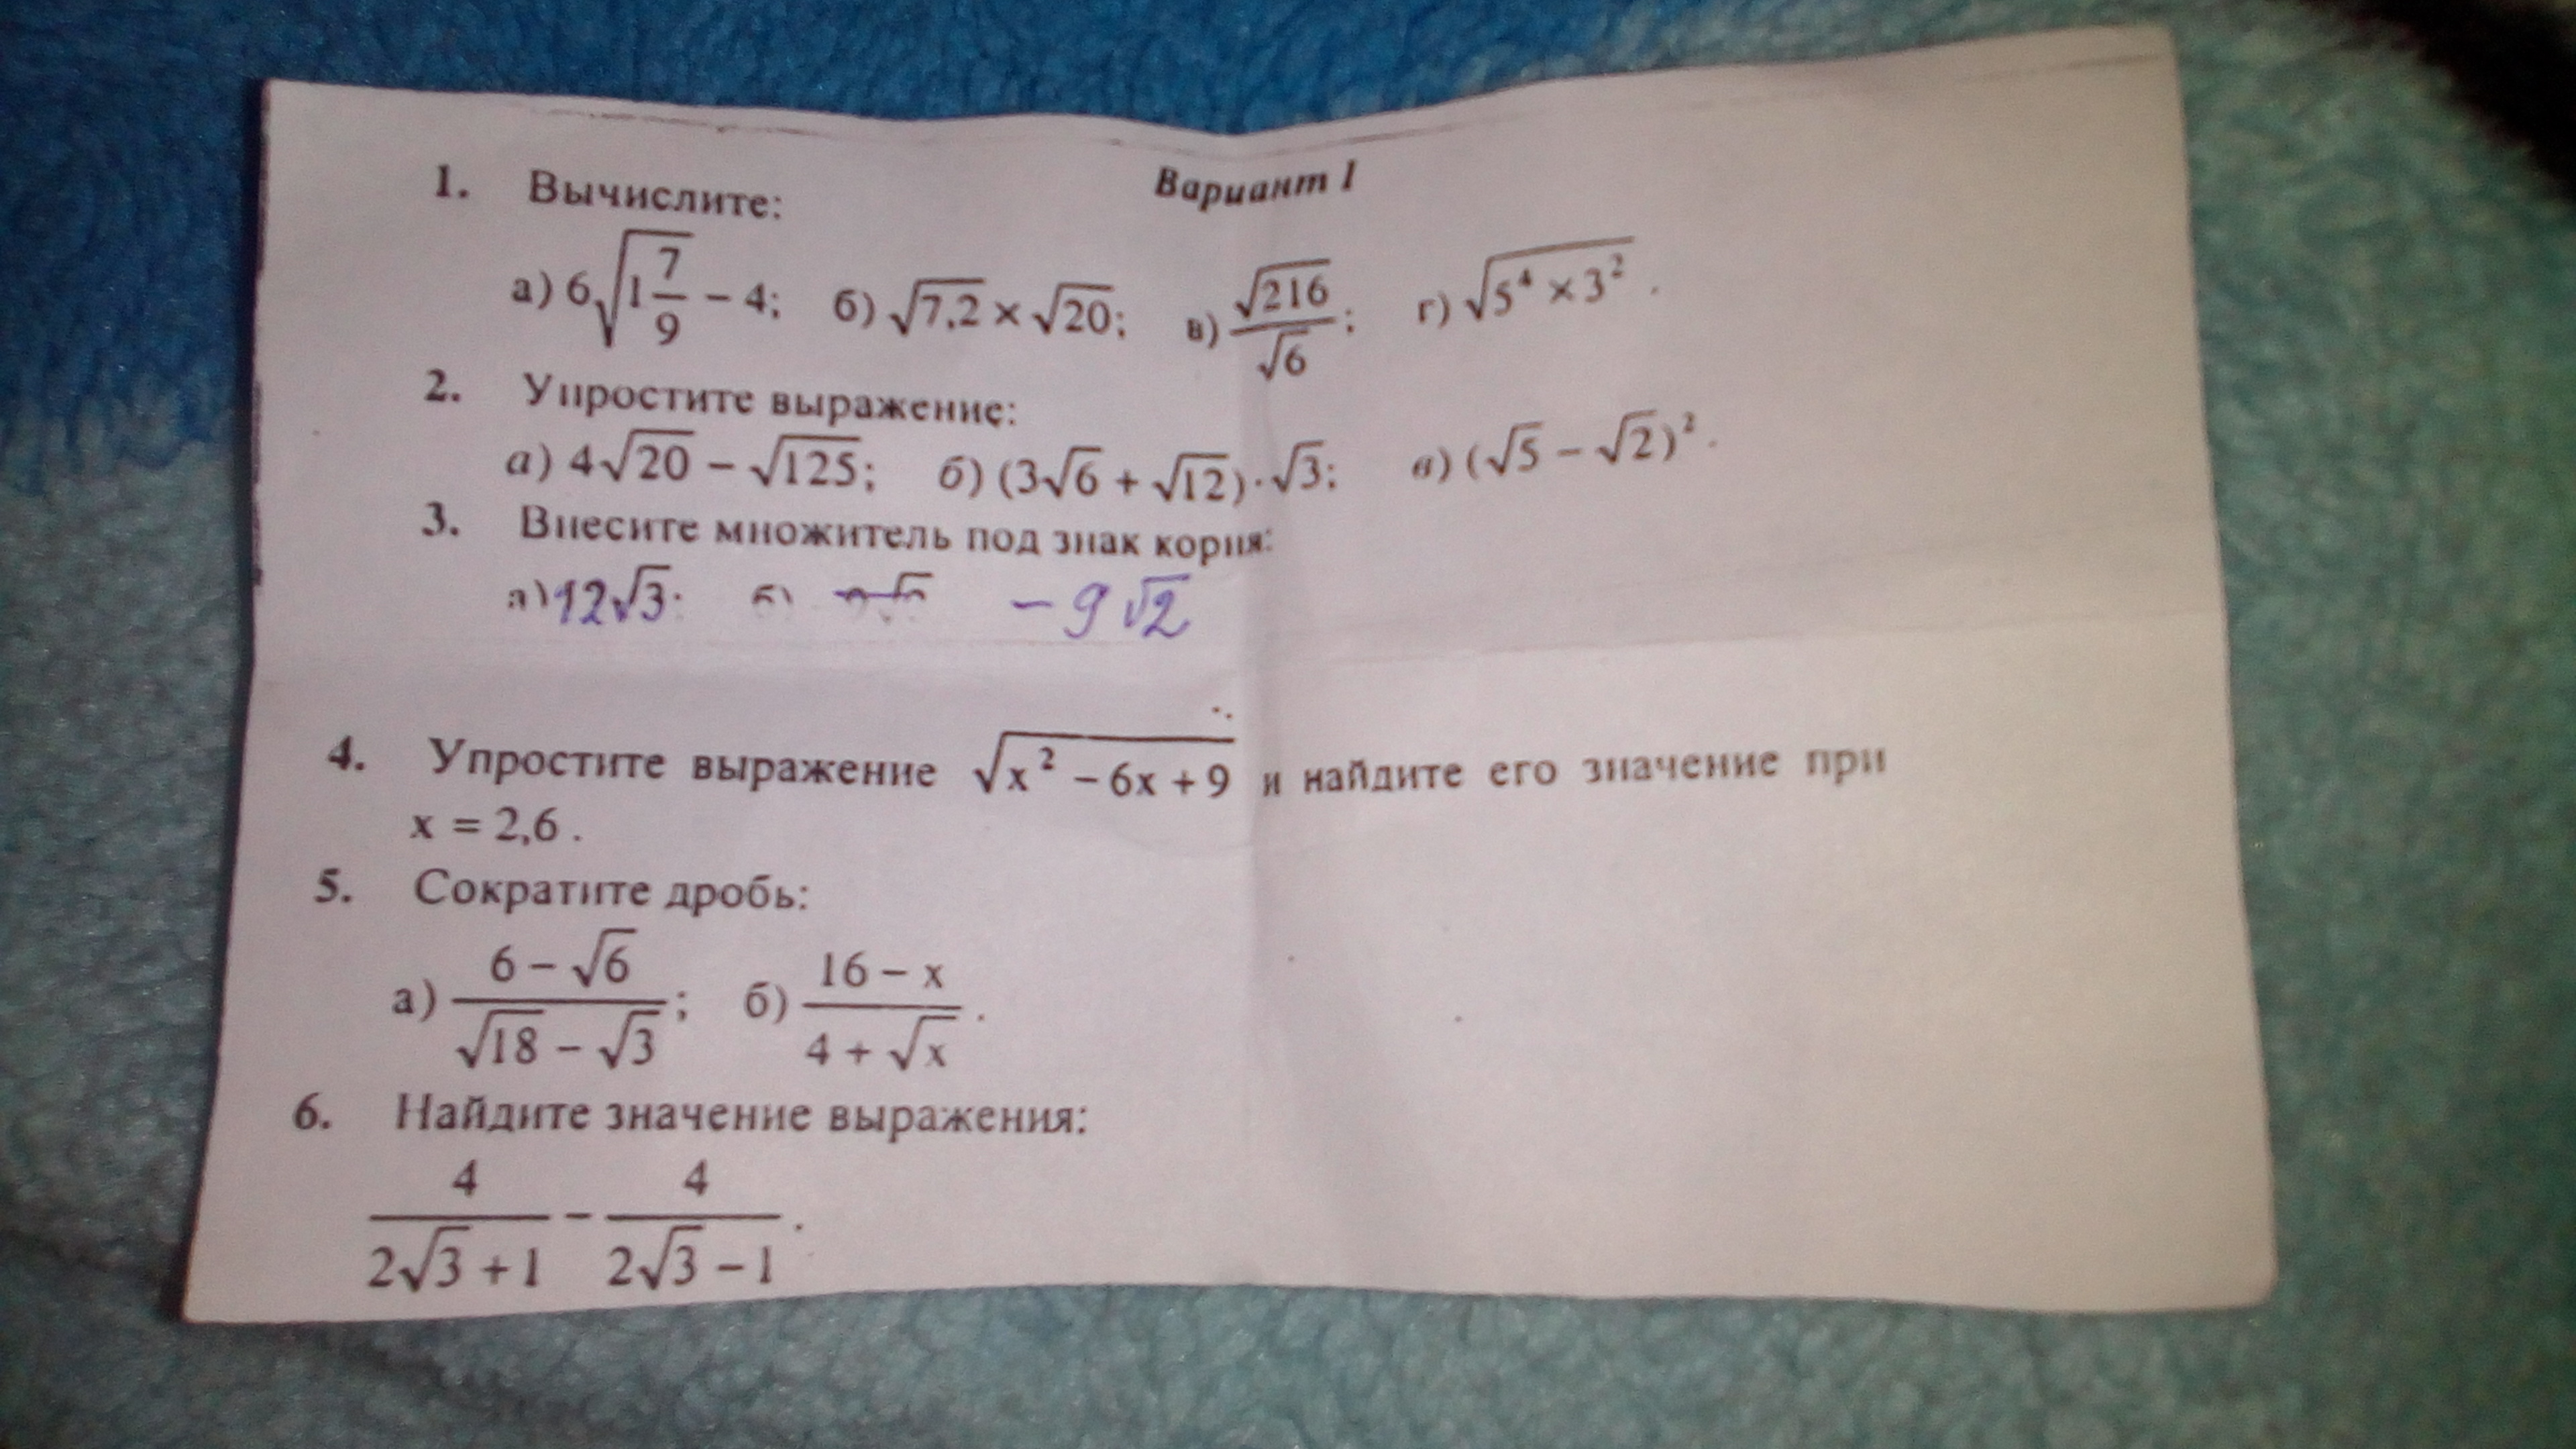 Вариант 1
1. Вычислите:
а) 6√(1 7/9) − 4; б) √7,2 × √20; в) √216/√6; г) √(5⁴ × 3²).
2. Упростите выражение:
а) 4√20 − √125; б) (3√6 + √12)·√3; в) (√5 − √2)².
3. Внесите множитель под знак корня:
а) 12√3; б) −9√2
4. Упростите выражение √(x² − 6x + 9) и найдите его значение при
x = 2,6.
5. Сократите дробь:
а) (6 − √6)/(√18 − √3); б) (16 − x)/(4 + √x).
6. Найдите значение выражения:
4/(2√3 + 1) − 4/(2√3 − 1).